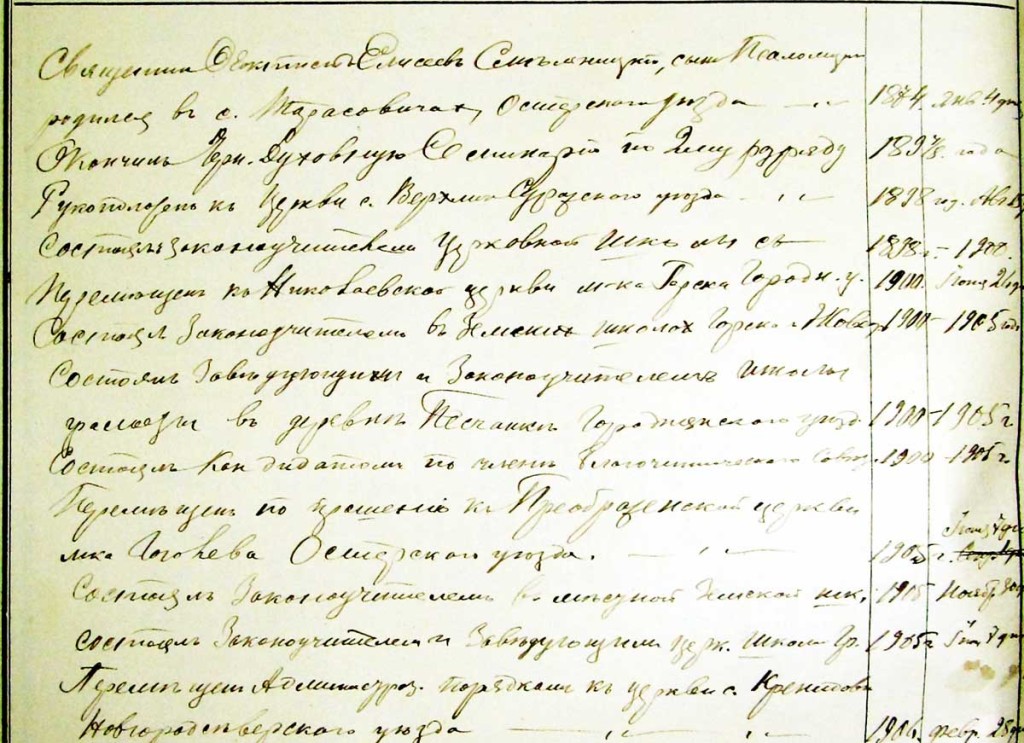 Священник Феоктист Елисеев, сын Псаломщ
родился в с. Тарасовичах, Остерского уезда — „ 1874 янв 4 дня
Окончил Черн. Духовную Семинарию по 2му разряду 189 года
Рукоположен къ Церкви с. Суражского уезда - „ - 1898 год.
Состоял законоучителем церковной школы съ 1898 - 1900.
Перемещен къ Николаевской церкви м-ка Горска Городн. у. 1900
Состоял Законоучителем в Земских школах Горска и 1900 - 1905 года
Состоял Заведующим и Законоучителемъ школы
грамоты въ деревнѣ Песчанкѣ Городнянского уезд 1900 - 1905 г
Состоял Кандидатом по члень благочиннического 1900 - 1905 г.
Перемѣщен по прошенію къ Преображенской церкви
мка Гоголева Остерского уезда. — „ — 1905 г.
Состоял Законоучителем в мѣстной Земской шк. 1905 Ноябр
состоял Законоучителем и Заведующим церк. школы гр. 1905 г 7 дня
Перемѣщен Администрац. порядкомъ къ церкви с.
Новгородсѣверского уезда — „ — „ 1906. февр. 28 дня